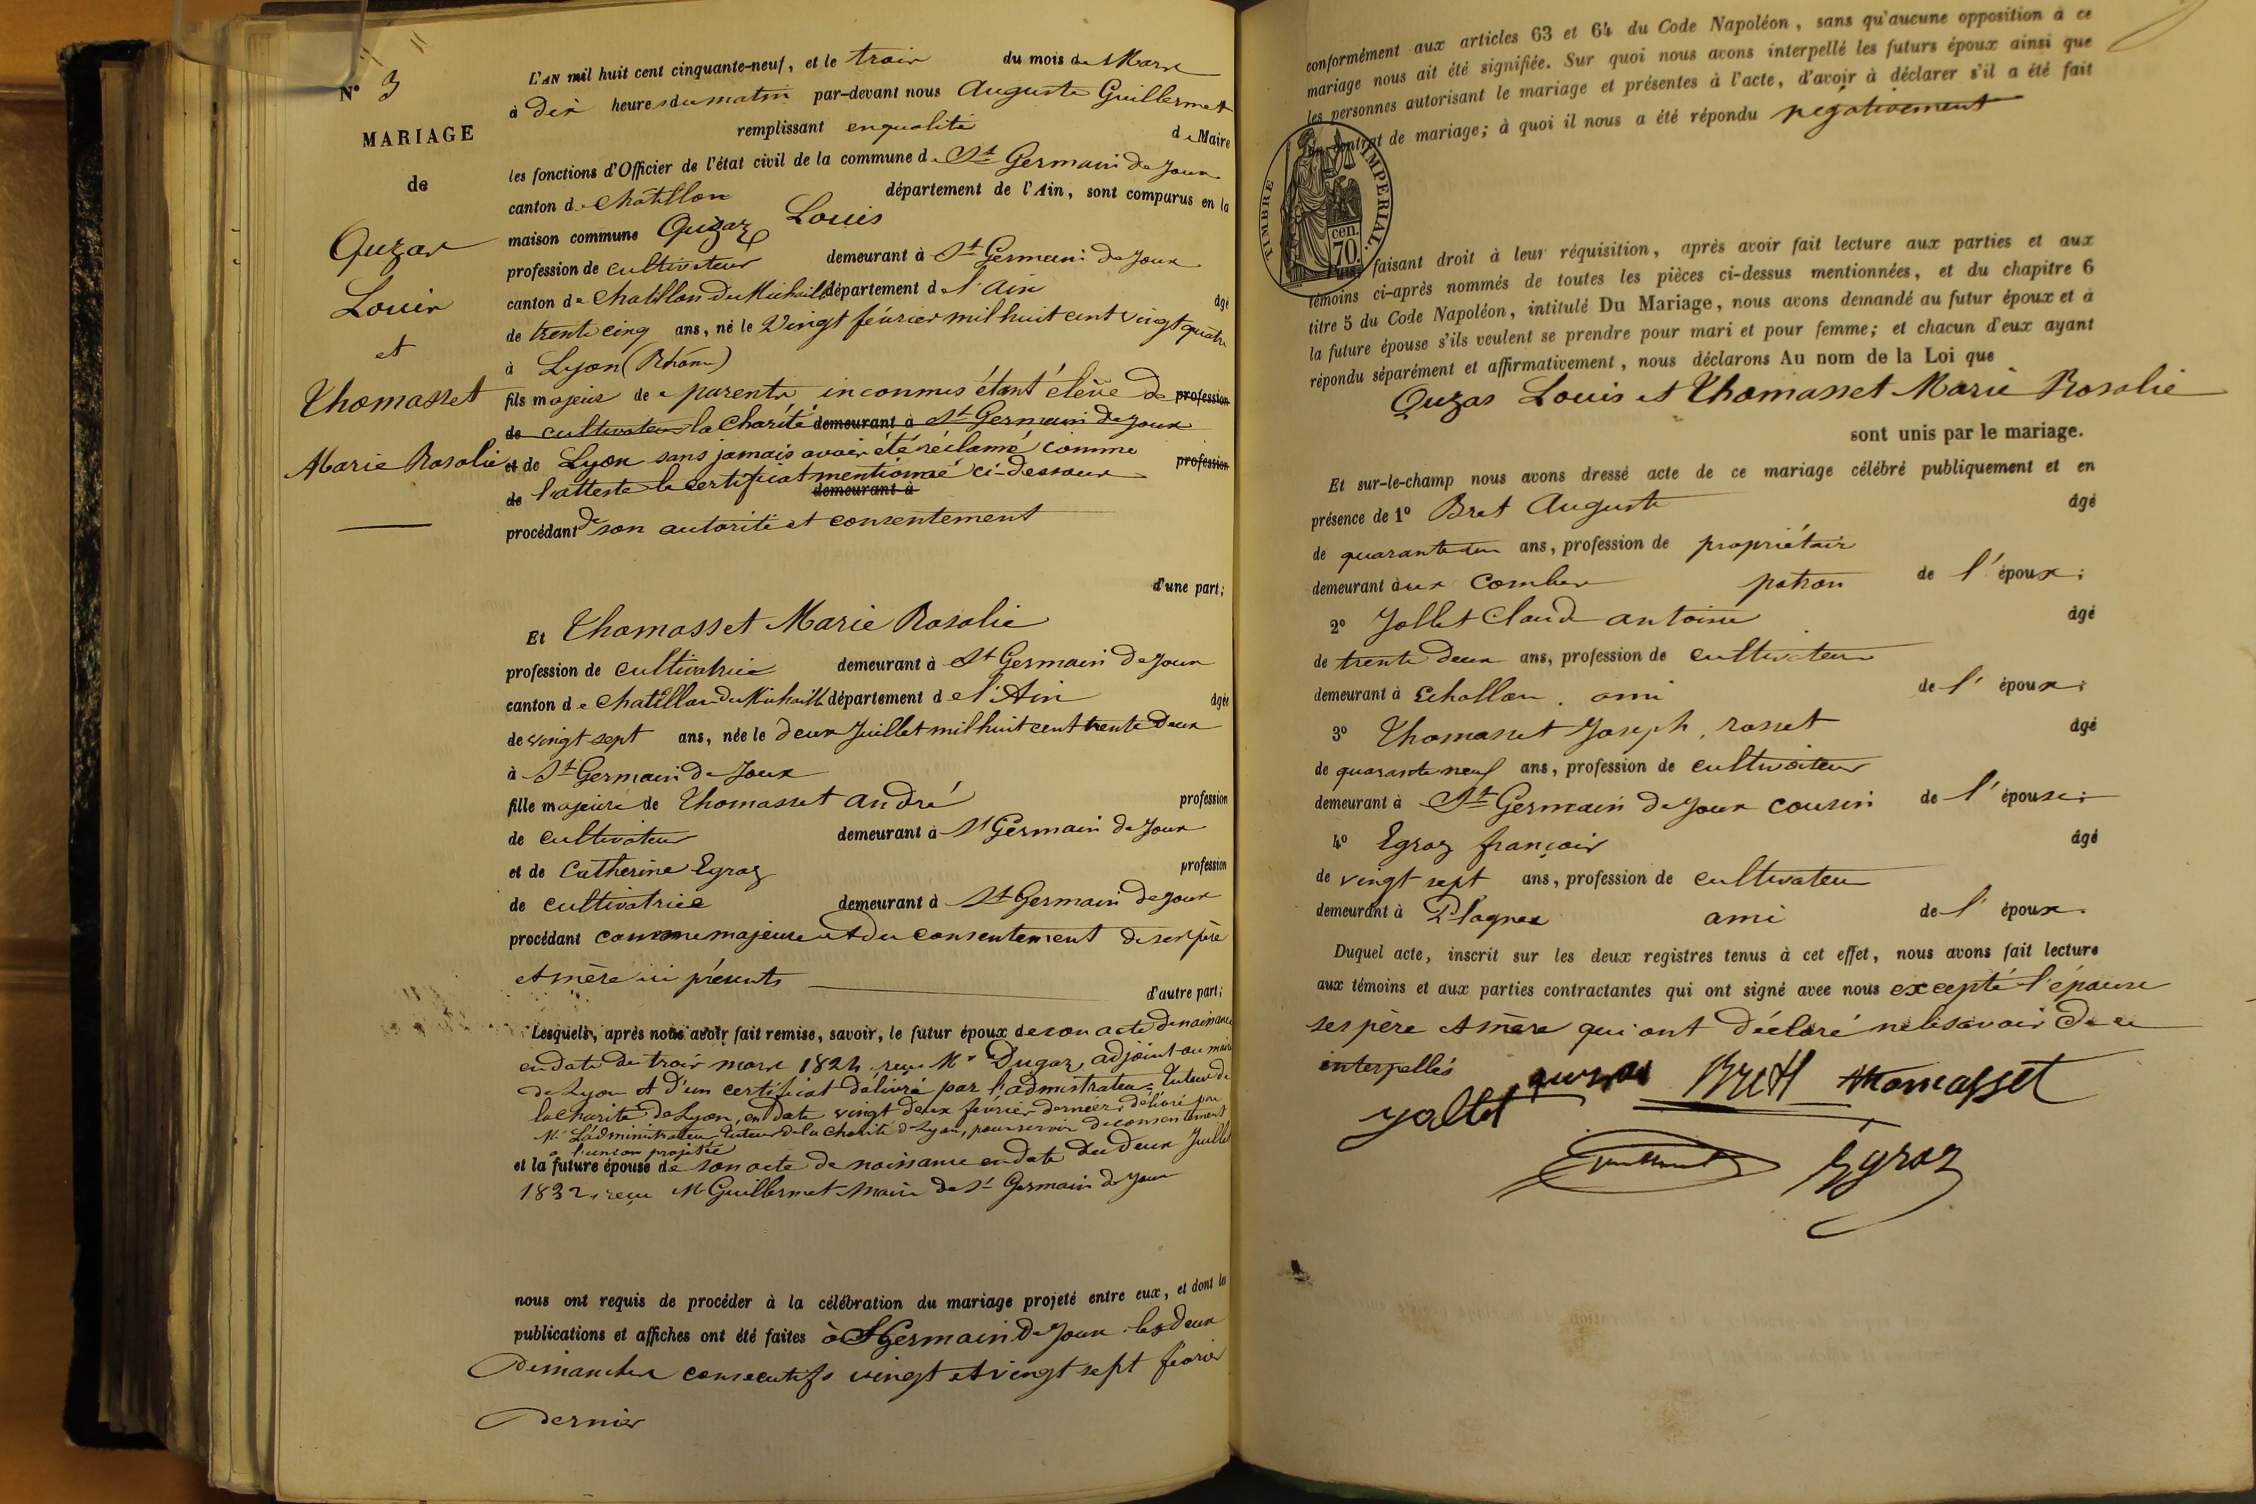 N° 3
MARIAGE
de
Quzar
Louis
et
Thomasset
Marie Rosalie
L'AN mil huit cent cinquante-neuf, et le trois du mois de Mars
à dix heures du matin par-devant nous Auguste Guillermet
remplissant en qualité de Maire
les fonctions d'Officier de l'état civil de la commune de St Germain de Joux
canton de Chatillon département de l'Ain, sont comparus en la
maison commune Quzaz Louis
profession de cultivateur demeurant à St Germain de Joux
canton de Chatillon de Michaille département de l'Ain âgé
de trente cinq ans, né le Vingt février mil huit cent vingt quatre
à Lyon (Rhône)
fils majeur de parents inconnus étant élève de profession
de cultivateur la Charité demeurant à St Germain de Joux
et de Lyon sans jamais avoir été réclamé comme profession
de l'atteste le certificat mentionné ci-dessous demeurant à
procédant de son autorité et consentement
d'une part;
Et Thomasset Marie Rosalie
profession de cultivatrice demeurant à St Germain de Joux
canton de Chatillon de Michaille département de l'Ain âgée
de vingt sept ans, née le deux Juillet mil huit cent trente deux
à St Germain de Joux
fille majeure de Thomasset André profession
de cultivateur demeurant à St Germain de Joux
et de Catherine Egraz profession
de cultivatrice demeurant à St Germain de Joux
procédant comme majeure et du consentement de ses père
et mère ici présents
d'autre part;
Lesquels, après nous avoir fait remise, savoir, le futur époux de son acte de naissance
en date du trois mars 1824 reçu Mr Dugaz, adjoint au maire
de Lyon et d'un certificat délivré par l'admistrateur Tuteur de
la Charité de Lyon, en date vingt deux février dernier délivré par
Mr L'administrateur Tuteur de la Charité de Lyon, pour servir de consentement
à l'union projetée
et la future épouse de son acte de naissance en date du deux Juillet
1832, reçu Mr Guillermet Maire de St Germain de Joux
nous ont requis de procéder à la célébration du mariage projeté entre eux, et dont les
publications et affiches ont été faites à St Germain de Joux les deux
Dimanches consecutifs vingt et vingt sept février
dernier
conformément aux articles 63 et 64 du Code Napoléon, sans qu'aucune opposition à ce
mariage nous ait été signifiée. Sur quoi nous avons interpellé les futurs époux ainsi que
les personnes autorisant le mariage et présentes à l'acte, d'avoir à déclarer s'il a été fait
un contrat de mariage; à quoi il nous a été répondu négativement
TIMBRE IMPERIAL.
70 cen.
faisant droit à leur réquisition, après avoir fait lecture aux parties et aux
témoins ci-après nommés de toutes les pièces ci-dessus mentionnées, et du chapitre 6
titre 5 du Code Napoléon, intitulé Du Mariage, nous avons demandé au futur époux et à
la future épouse s'ils veulent se prendre pour mari et pour femme; et chacun d'eux ayant
répondu séparément et affirmativement, nous déclarons Au nom de la Loi que
Quzas Louis et Thomasset Marie Rosalie
sont unis par le mariage.
Et sur-le-champ nous avons dressé acte de ce mariage célébré publiquement et en
présence de 1° Bret Auguste âgé
de quarante un ans, profession de propriétair
demeurant aux Combes patron de l'époux;
2° Jollet Claude antoine âgé
de trente deux ans, profession de cultivateur
demeurant à Echallon. ami de l'époux;
3° Thomasset Joseph, rosset âgé
de quarante neuf ans, profession de cultivateur
demeurant à St Germain de Joux cousin de l'épouse;
4° Egraz françois âgé
de vingt sept ans, profession de cultivateur
demeurant à Plagnes ami de l'époux.
Duquel acte, inscrit sur les deux registres tenus à cet effet, nous avons fait lecture
aux témoins et aux parties contractantes qui ont signé avec nous excepté l'épouse
ses père et mère qui ont déclaré ne le savoir de ce
interpellés
Bret thomasset
Jollet
Egraz